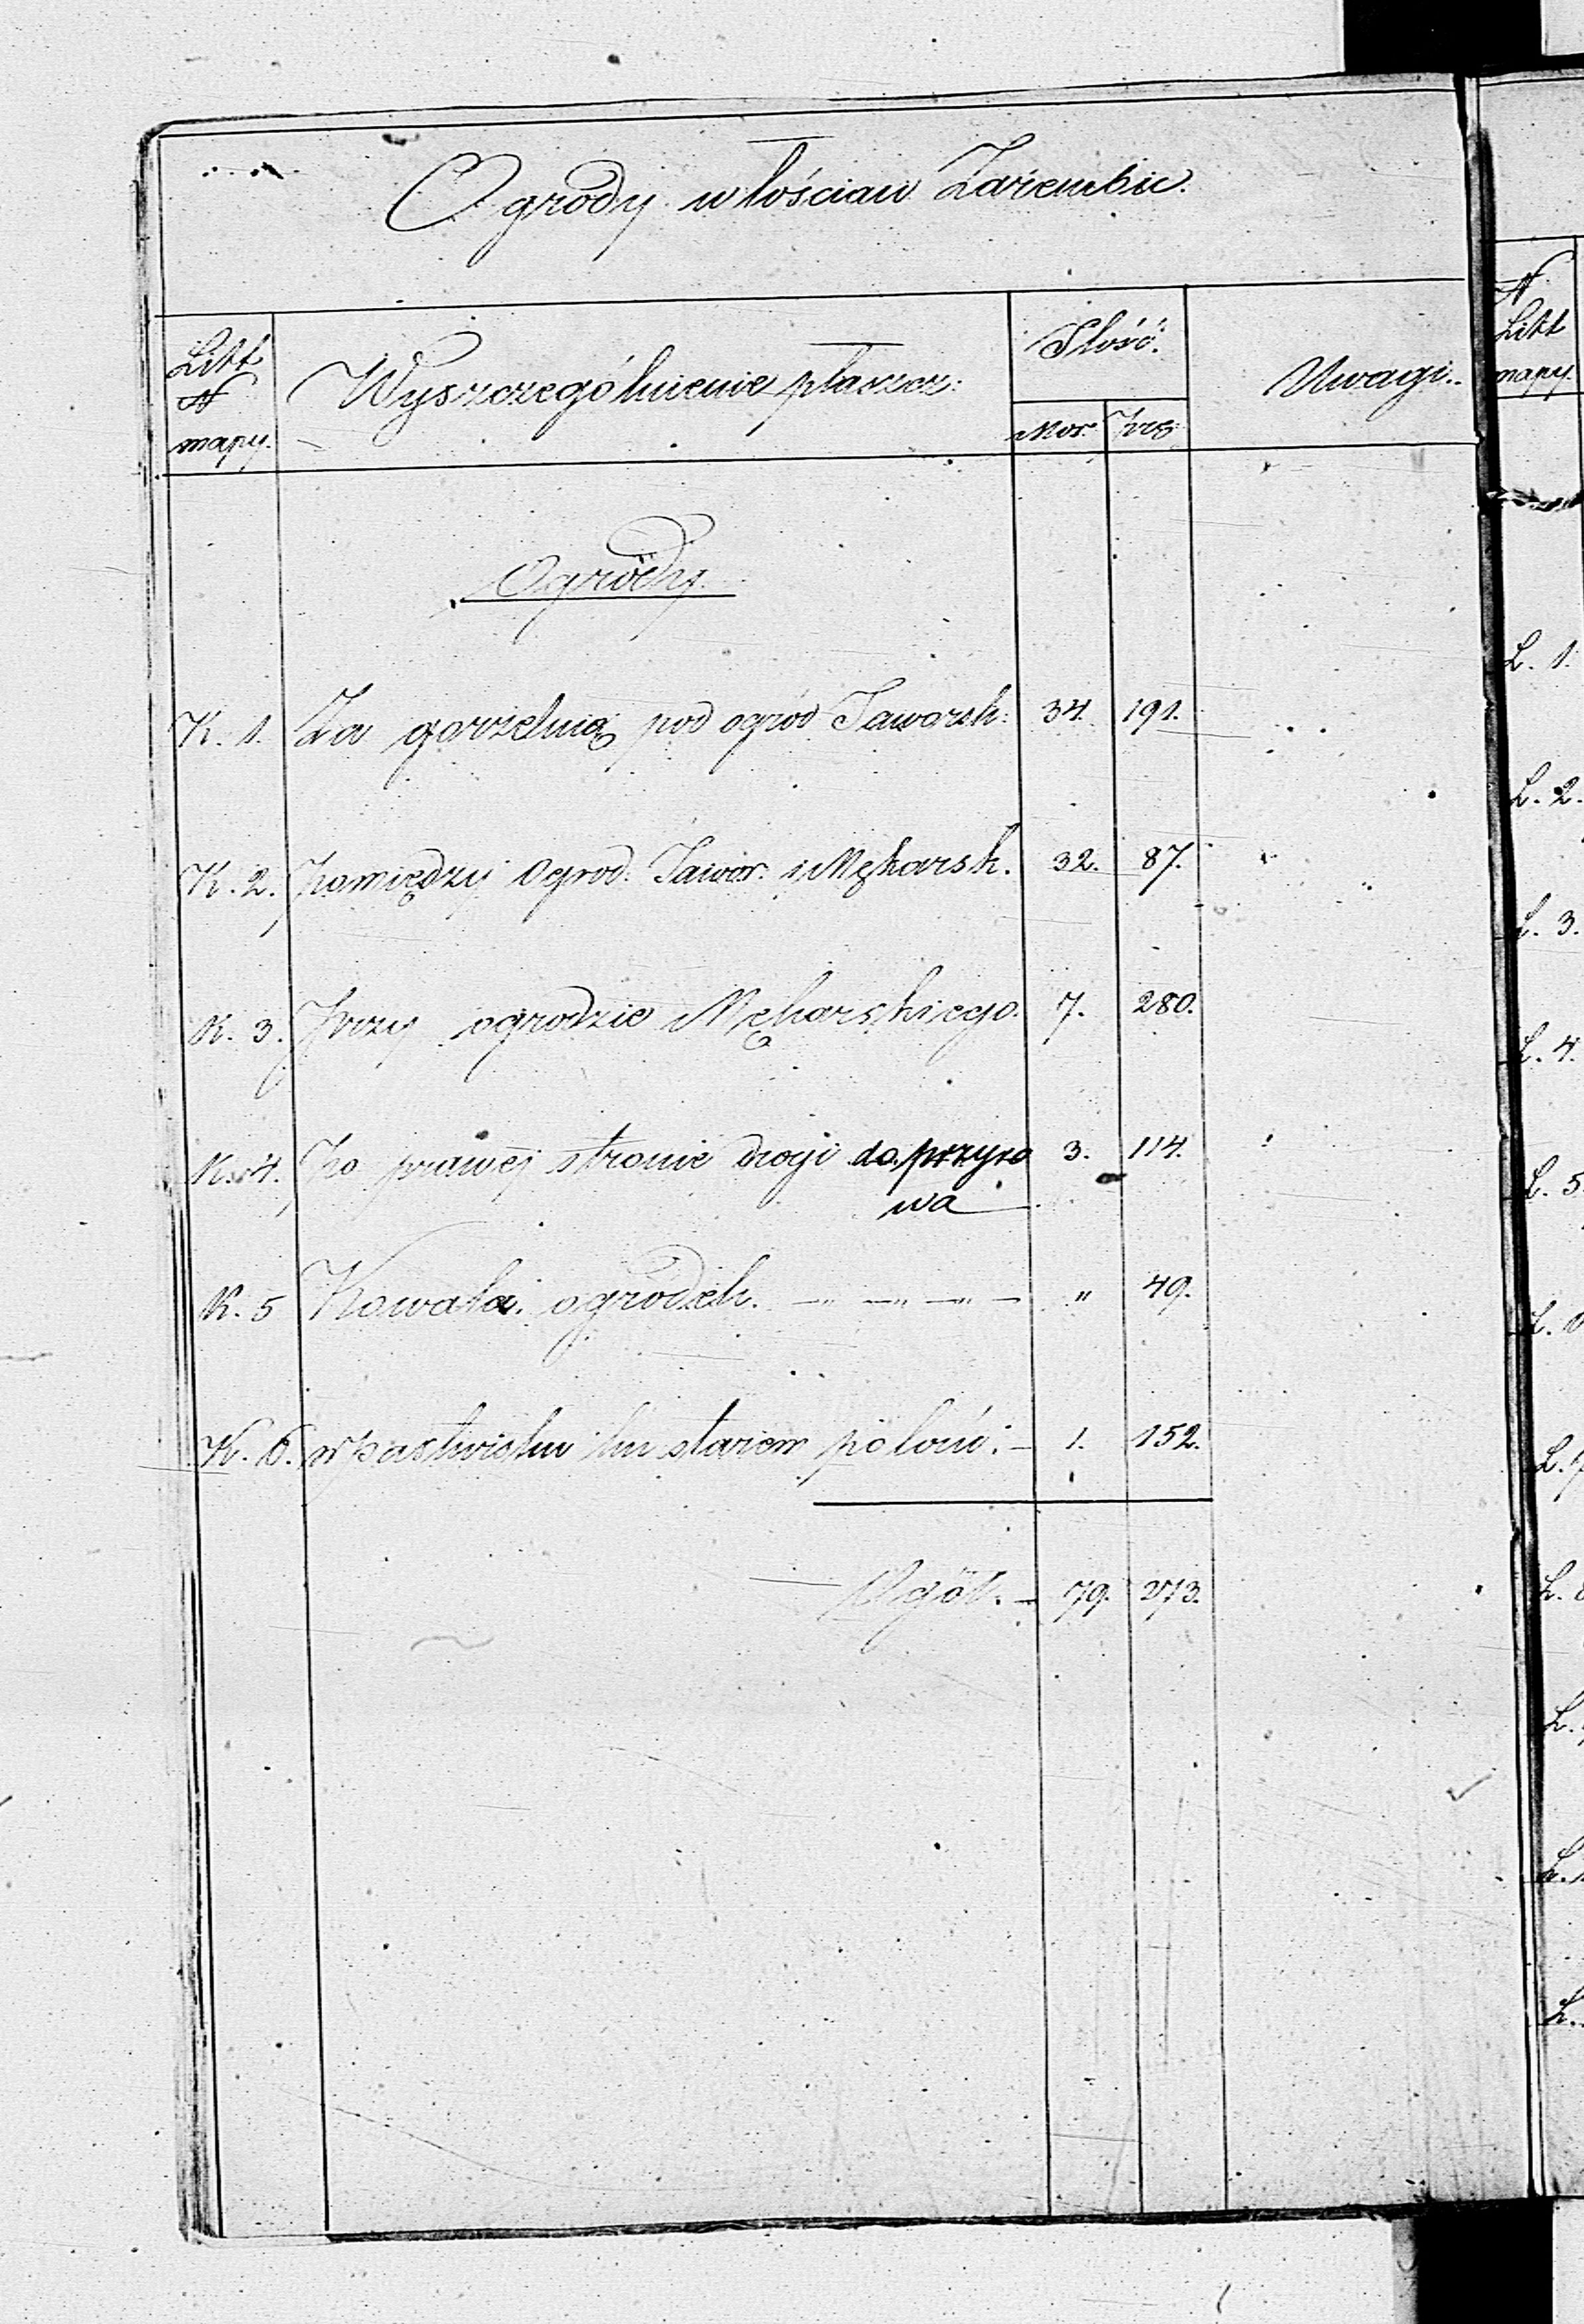 Ogrody włościan Zarembic.
Litt
N
mapy.
Wyszczególnienie płaszcz:
Ilość.
Mor. Prę.
Uwagi..
Ogrody.
K. 1. Za gorzelnią pod ogród Jaworsk: 34. 191.
K. 2. Pomiędzy Ogrod. Jawor. i Mękarsk. 32. 87.
K. 3. Przy ogrodzie Mękarskiego. 7. 280.
K. 4. Po prawej stronie drogi do przyro 3. 114.
wa
K. 5 Kowala ogródek. — " — " — " — " 49.
K. 6. w pastwisku ku starem 1. 152.
Ogół. — 79. 273.
N
Litt
mapy.
L. 1.
L. 2.
L. 3.
L. 4.
L. 5.